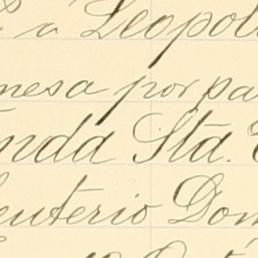 a Leopol
mesa por pa
nda Sta.
euterio Dom